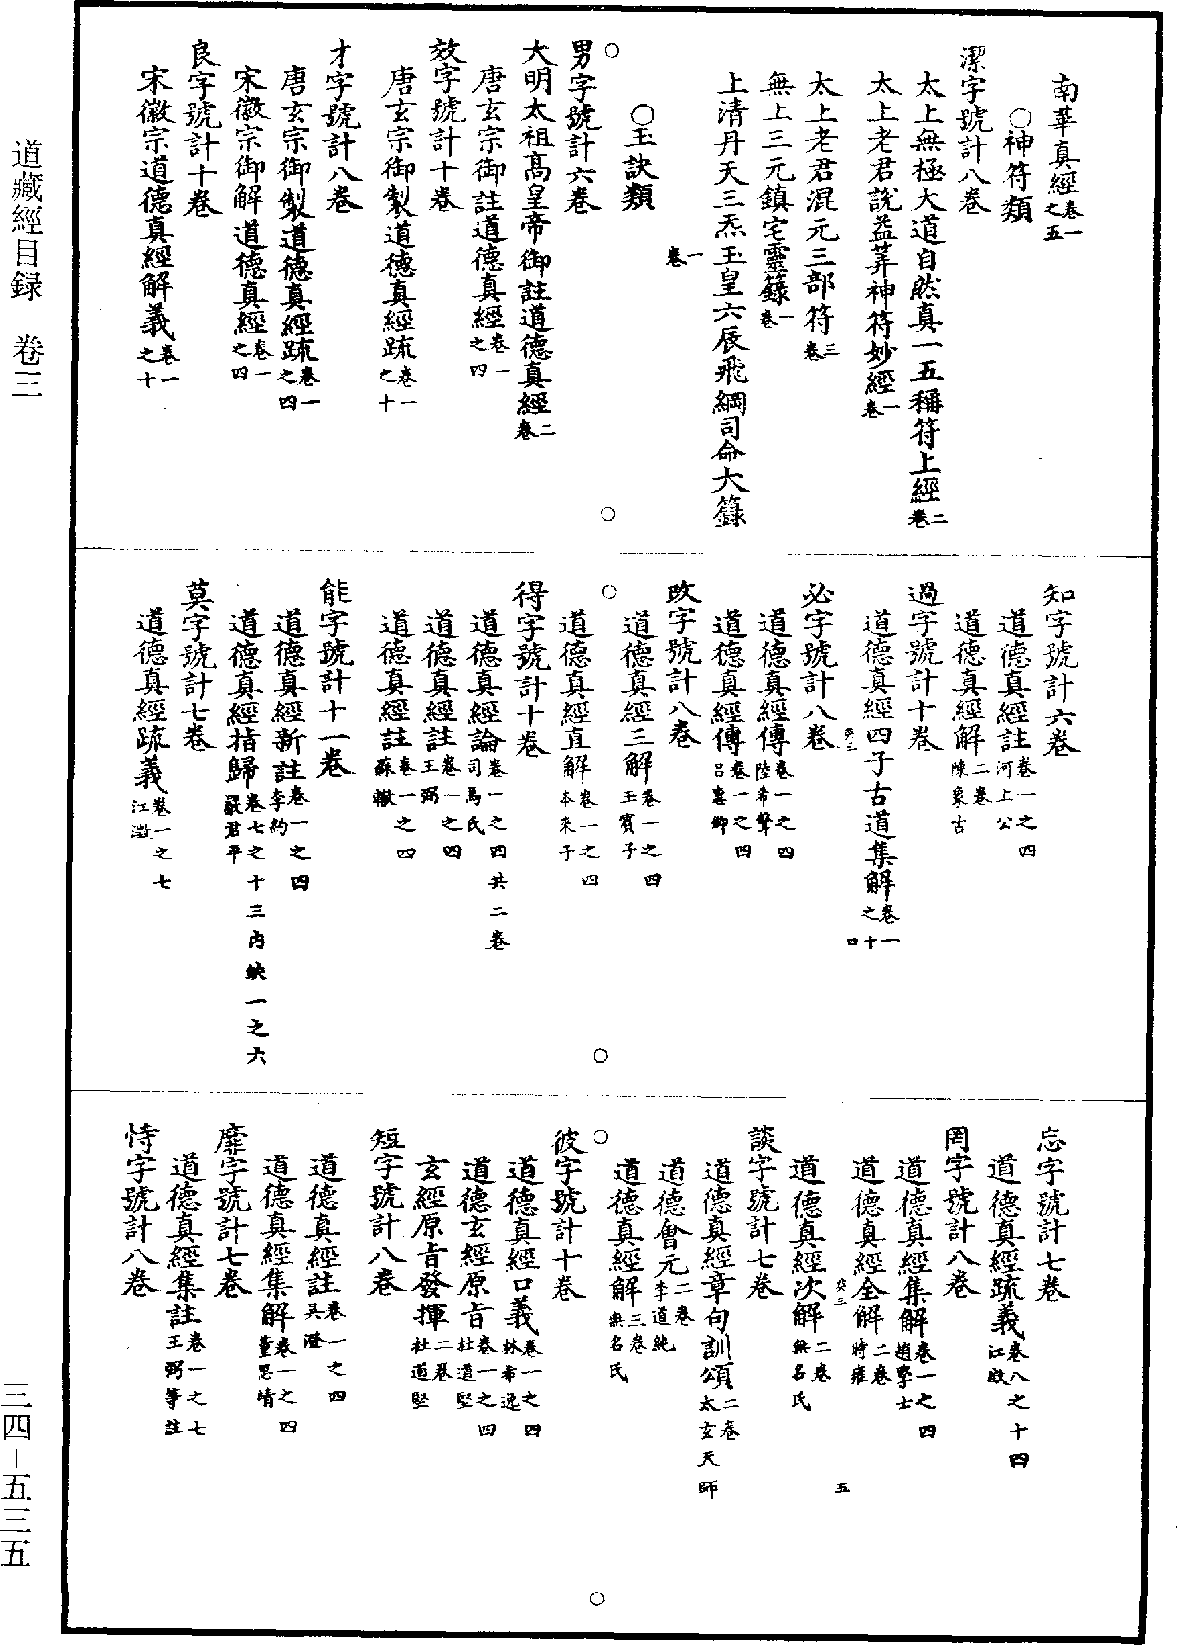 道藏經目録　卷三
南華真經卷一之五
○神符類
潔字號計八卷
太上無極大道自然真一五稱符上經二卷
太上老君說益筭神符妙經一卷
太上老君混元三部符三卷
無上三元鎮宅靈籙一卷
上清丹天三炁玉皇六辰飛綱司命大籙一卷
○玉訣類
男字號計六卷
大明太祖高皇帝御註道德真經二卷
唐玄宗御註道德真經卷一之四
效字號計十卷
唐玄宗御製道德真經疏卷一之十
才字號計八卷
唐玄宗御製道德真經疏卷一之四
宋徽宗御解道德真經卷一之四
良字號計十卷
宋徽宗道德真經解義卷一之十
知字號計六卷
道德真經註卷一之四河上公
道德真經解二卷陳象古
過字號計十卷
道德真經四子古道集解卷一之十
四
必字號計八卷
道德真經傳卷一之四陸希聲
道德真經傳卷一之四呂惠卿
改字號計八卷
道德真經三解卷一之四玉賓子
道德真經直解卷一之四本來子
得字號計十卷
道德真經論卷一之四共二卷司馬氏
道德真經註卷一之四王弼
道德真經註卷一之四蘇轍
能字號計十一卷
道德真經新註卷一之四李約
道德真經指歸卷七之十三內缺一之六嚴君平
莫字號計七卷
道德真經疏義卷一之七江澂
忘字號計七卷
道德真經疏義卷八之十四江澂
罔字號計八卷
道德真經集解卷一之四趙學士
道德真經全解二卷時雍
五
道德真經次解二卷無名氏
談字號計七卷
道德真經章句訓頌二卷太玄天師
道德會元二卷李道純
道德真經解三卷無名氏
彼字號計十卷
道德真經口義卷一之四林希逸
道德玄經原旨卷一之四杜道堅
玄經原旨發揮二卷杜道堅
短字號計八卷
道德真經註卷一之四吳澄
道德真經集解卷一之四董思靖
靡字號計七卷
道德真經集註卷一之七王弼等註
恃字號計八卷
三四－五三五